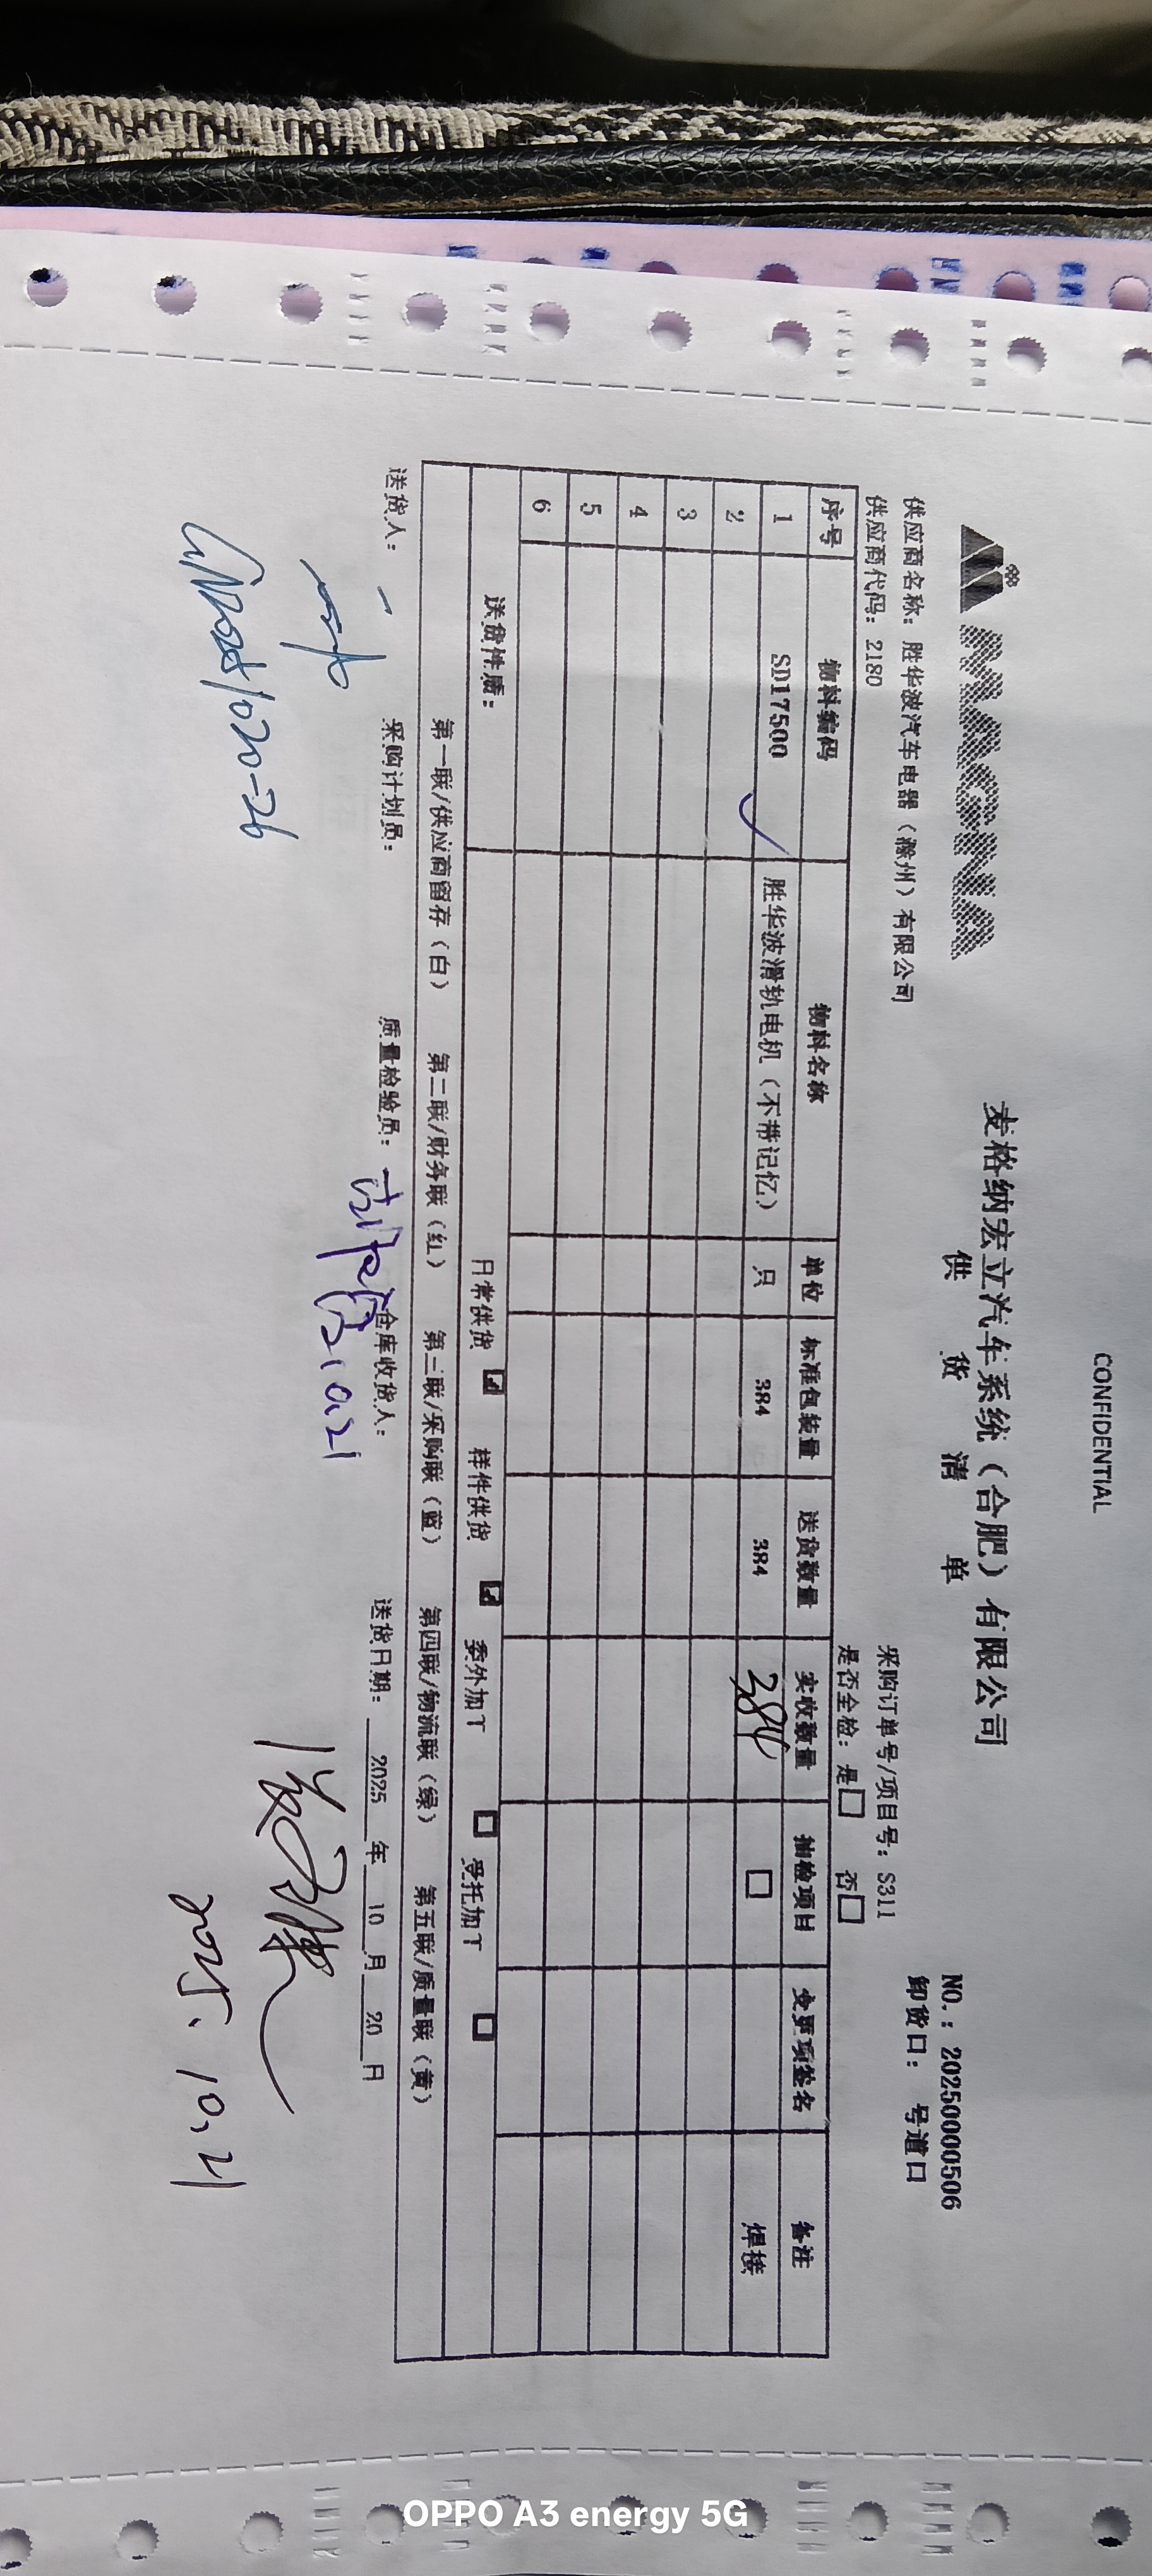 CONFIDENTIAL
MAGNA
麦格纳宏立汽车系统（合肥）有限公司
供 货 清 单
NO.：20250000506
供应商名称：胜华波汽车电器（滁州）有限公司
采购订单号/项目号：S311
卸货口： 号道口
供应商代码：2180
是否全检：是□ 否□
序号 物料编码 物料名称 单位 标准包装量 送货数量 实收数量 抽检项目 变更项签名 备注
1 SD17500 胜华波滑轨电机（不带记忆） 只 384 384 384 □ 焊接
2
3
4
5
6
送货性质： 日常供货 ☑ 样件供货 ☑ 委外加T □ 受托加T □
第一联/供应商留存（白） 第二联/财务联（红） 第三联/采购联（蓝） 第四联/物流联（绿） 第五联/质量联（黄）
送货人： 采购计划员： 质量检验员： 仓库收货人： 送货日期： 2025 年 10 月 20 日
2025.10.21
OPPO A3 energy 5G